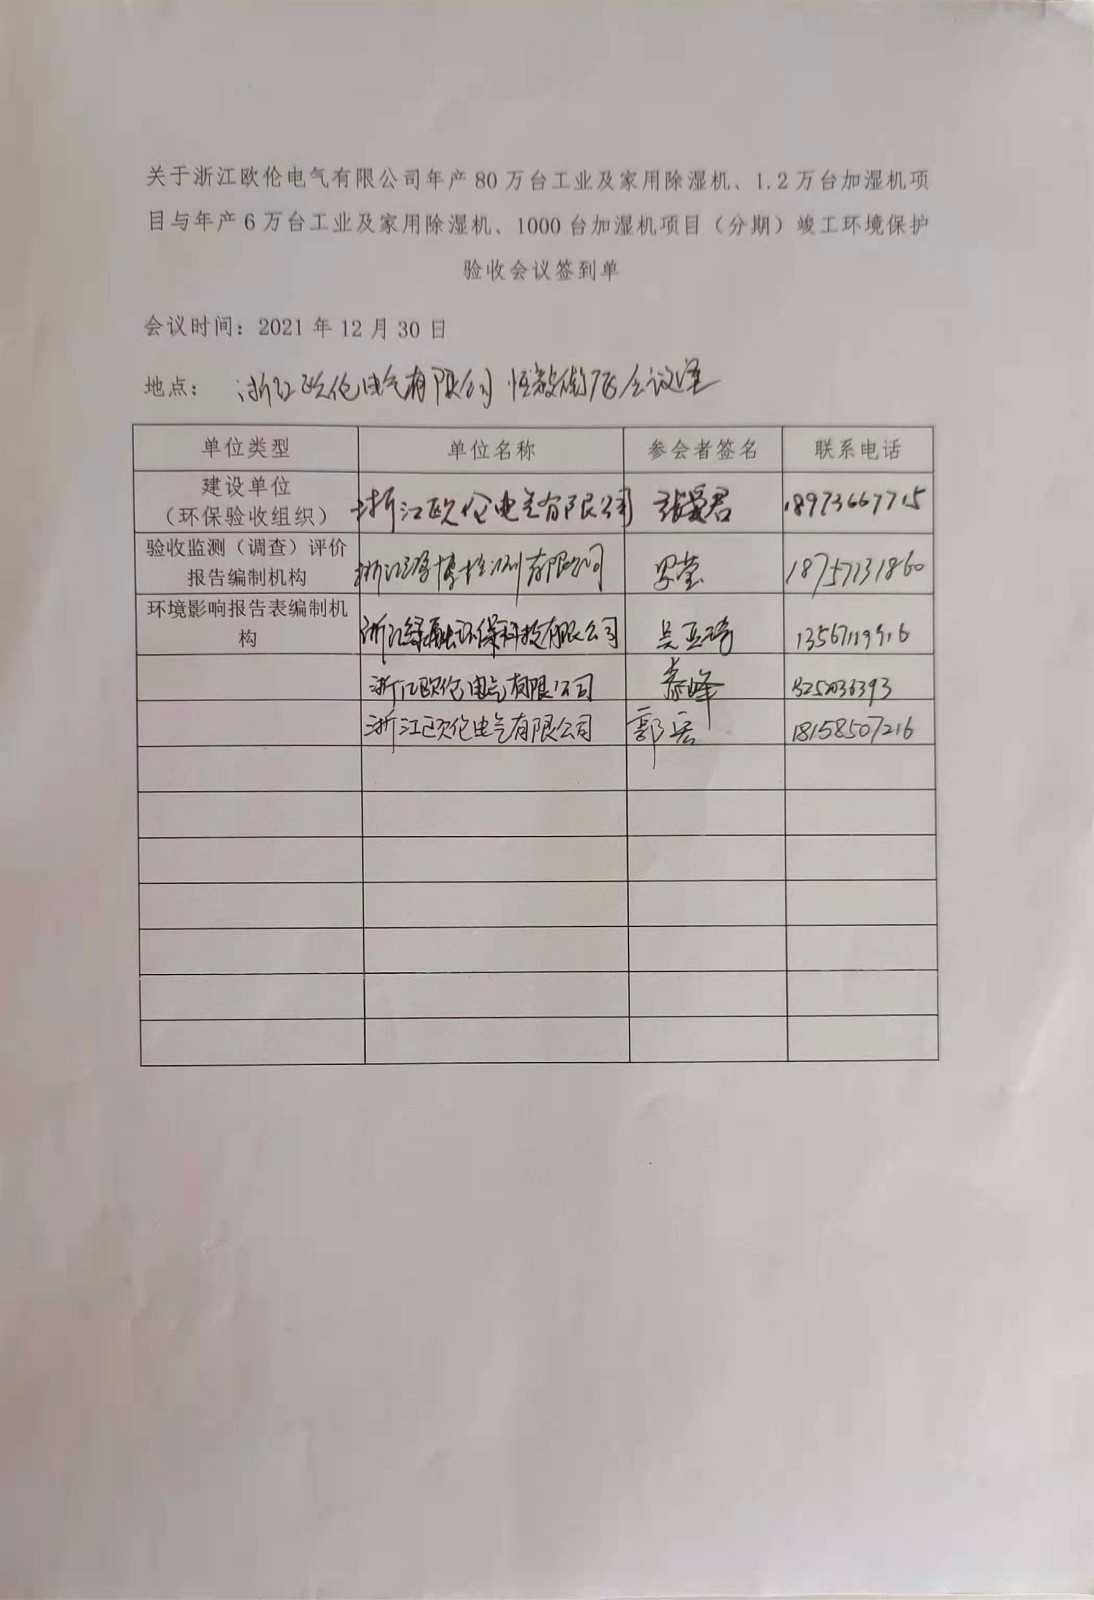 关于浙江欧伦电气有限公司年产80万台工业及家用除湿机、1.2万台加湿机项
目与年产6万台工业及家用除湿机、1000台加湿机项目（分期）竣工环境保护
验收会议签到单
会议时间：2021年12月30日
地点： 浙江欧伦电气有限公司 会议室
单位类型 单位名称 参会者签名 联系电话
建设单位
（环保验收组织） 浙江欧伦电气有限公司 君 18973667715
验收监测（调查）评价
报告编制机构 浙江 检测有限公司 莹 18757131860
环境影响报告表编制机
构 浙江绿融环保科技有限公司 吴亚琦 13567119916
浙江欧伦电气有限公司 秦峰
浙江欧伦电气有限公司 郭 18158507216